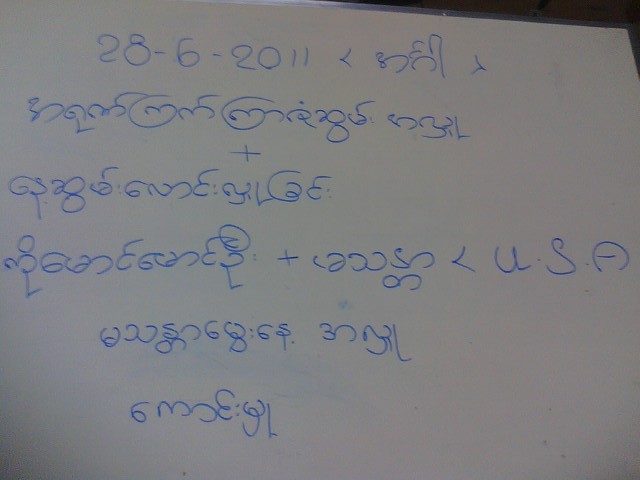 28-6-2011 < အင်္ဂါ >
အရုဏ်ကြက်ကြာဇံဆွမ်း အလှူ
+
နေ့ဆွမ်းလောင်းလှူခြင်း
ကိုမောင်မောင်ဦး + မသန္တာ < U.S.A
မသန္တာမွေးနေ့ အလှူ
ကောင်းမှု